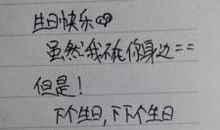 生日快乐
虽然我不在你身边==
但是！
下个生日，下下个生日